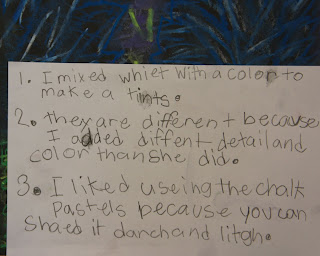 1. I mixed whiet with a color to
make a tints.
2. they are different because
I added diffent detail and
color than she did.
3. I liked useing the chalk
Pastels because you can
shaed it darch and litgh.